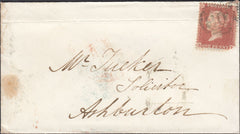 Mr. Tucker
Solicitor
Ashburton